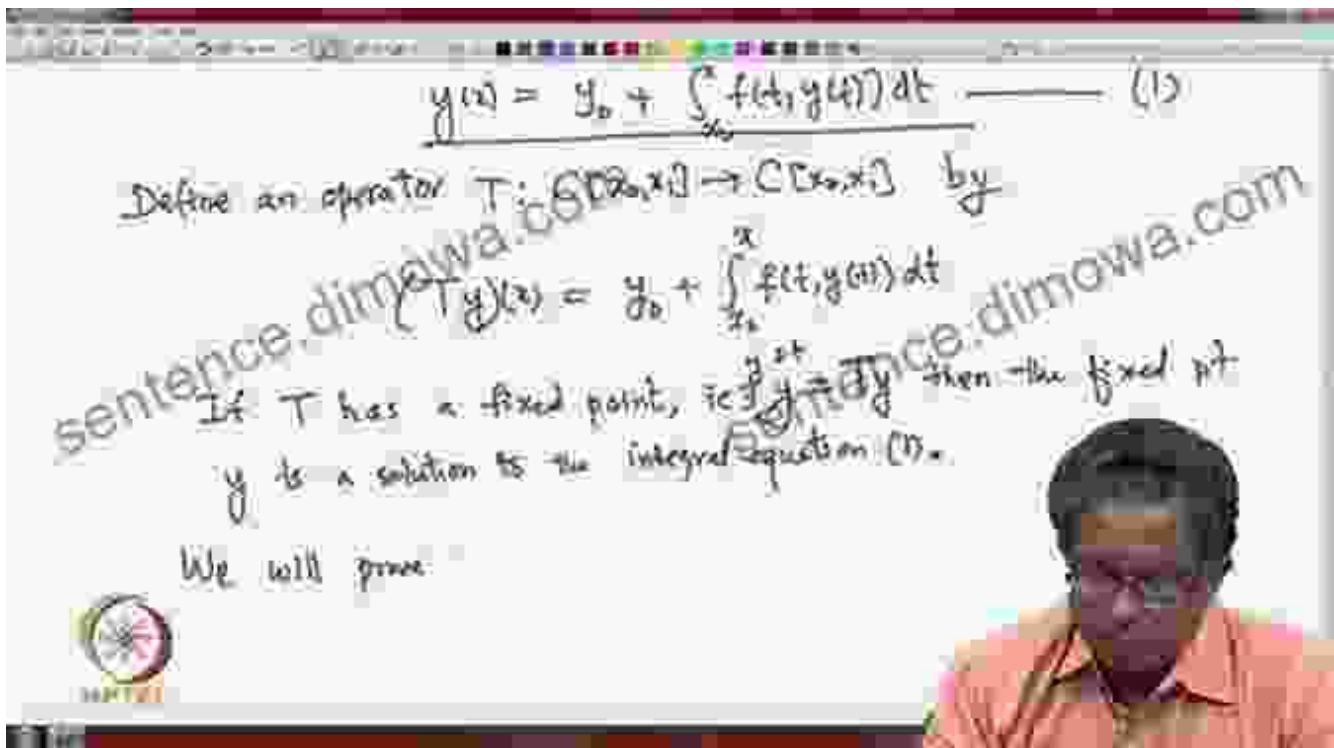 y(x) = y₀ + ∫_{x₀}^{x} f(t, y(t)) dt ——— (1)
Define an operator T: C[x₀,x₁] → C[x₀,x₁] by
(Ty)(x) = y₀ + ∫_{x₀}^{x} f(t, y(t)) dt
If T has a fixed point, ie ∃ y st y = Ty then the fixed pt
y is a solution to the integral equation (1).
We will prove
sentence.dimowa.com
sentence.dimowa.com
NPTEL